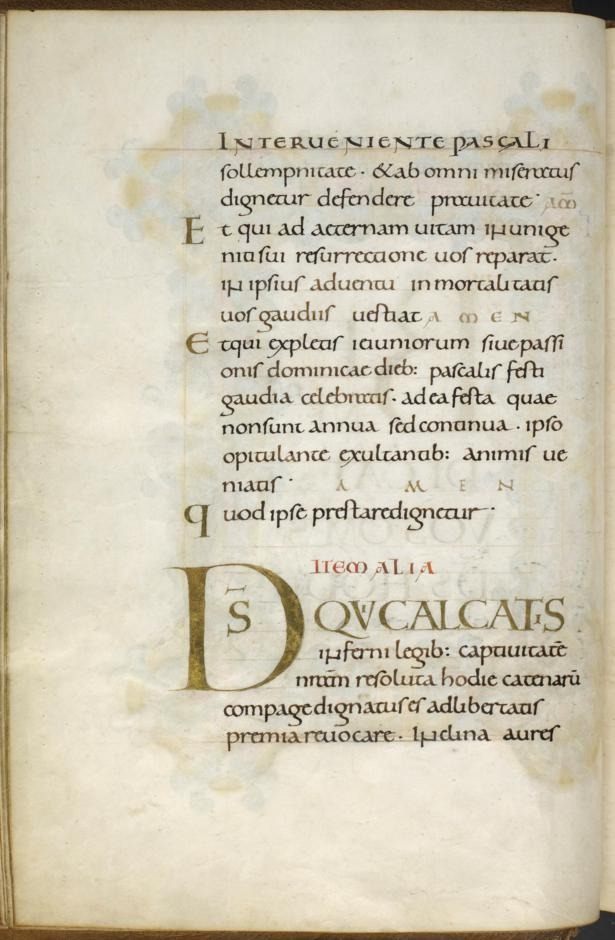 INTERUENIENTE PASCALI
sollempnitate · & ab omni miseratus
dignetur defendere prauitate · am̄
Et qui ad aeternam uitam in unige
niti sui resurrectione uos reparat ·
in ipsius aduentu inmortalitatis
uos gaudiis uestiat AMEN
Et qui expletis ieiuniorum siue passi
onis dominicae dieb: pascalis festi
gaudia celebratis · ad ea festa quae
non sunt annua sed continua · ipso
opitulante exultantib: animis ue
niatis · AMEN
quod ipse prestare dignetur ·
ITEM ALIA
DS̄ QUI CALCATIS
inferni legib: captiuitatē
nr̄am resoluta hodie catenarū
compage dignatus es ad libertatis
premia reuocare · Inclina aures